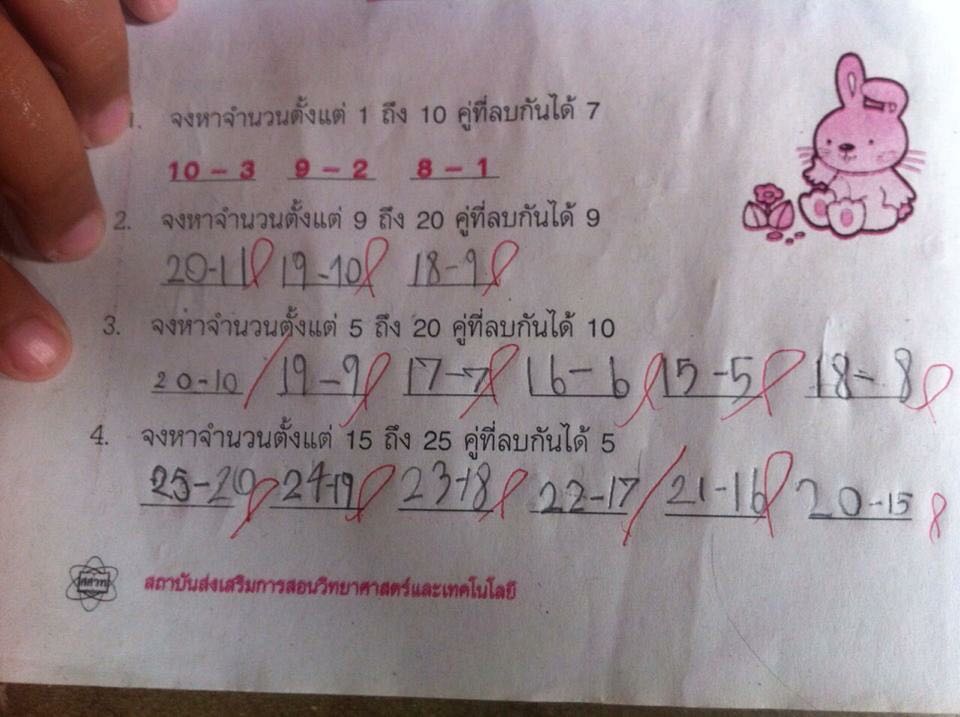 1. จงหาจำนวนตั้งแต่ 1 ถึง 10 คู่ที่ลบกันได้ 7
10 – 3 9 – 2 8 – 1
2. จงหาจำนวนตั้งแต่ 9 ถึง 20 คู่ที่ลบกันได้ 9
20-11 19-10 18-9
3. จงหาจำนวนตั้งแต่ 5 ถึง 20 คู่ที่ลบกันได้ 10
20-10 19-9 17-7 16-6 15-5 18-8
4. จงหาจำนวนตั้งแต่ 15 ถึง 25 คู่ที่ลบกันได้ 5
25-20 24-19 23-18 22-17 21-16 20-15
สสวท สถาบันส่งเสริมการสอนวิทยาศาสตร์และเทคโนโลยี